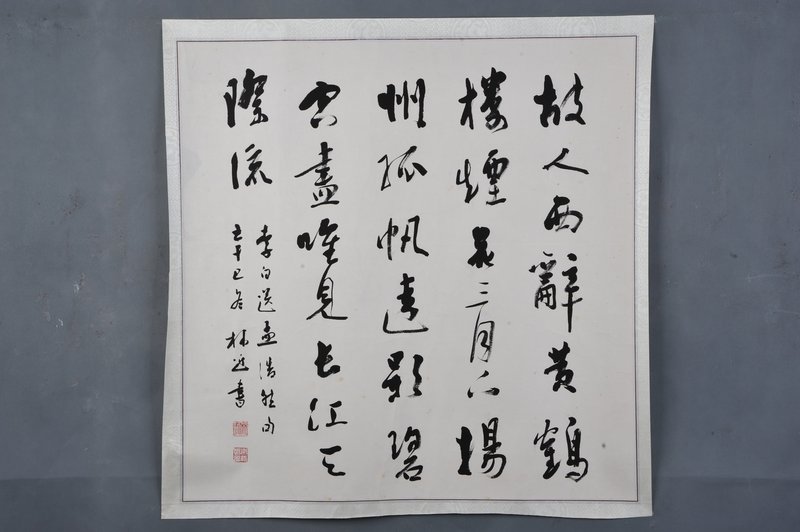 故人西辭黃鶴
樓煙花三月下揚
州孤帆遠影碧
空盡唯見長江天
際流
李白送孟浩然
辛巳冬 書